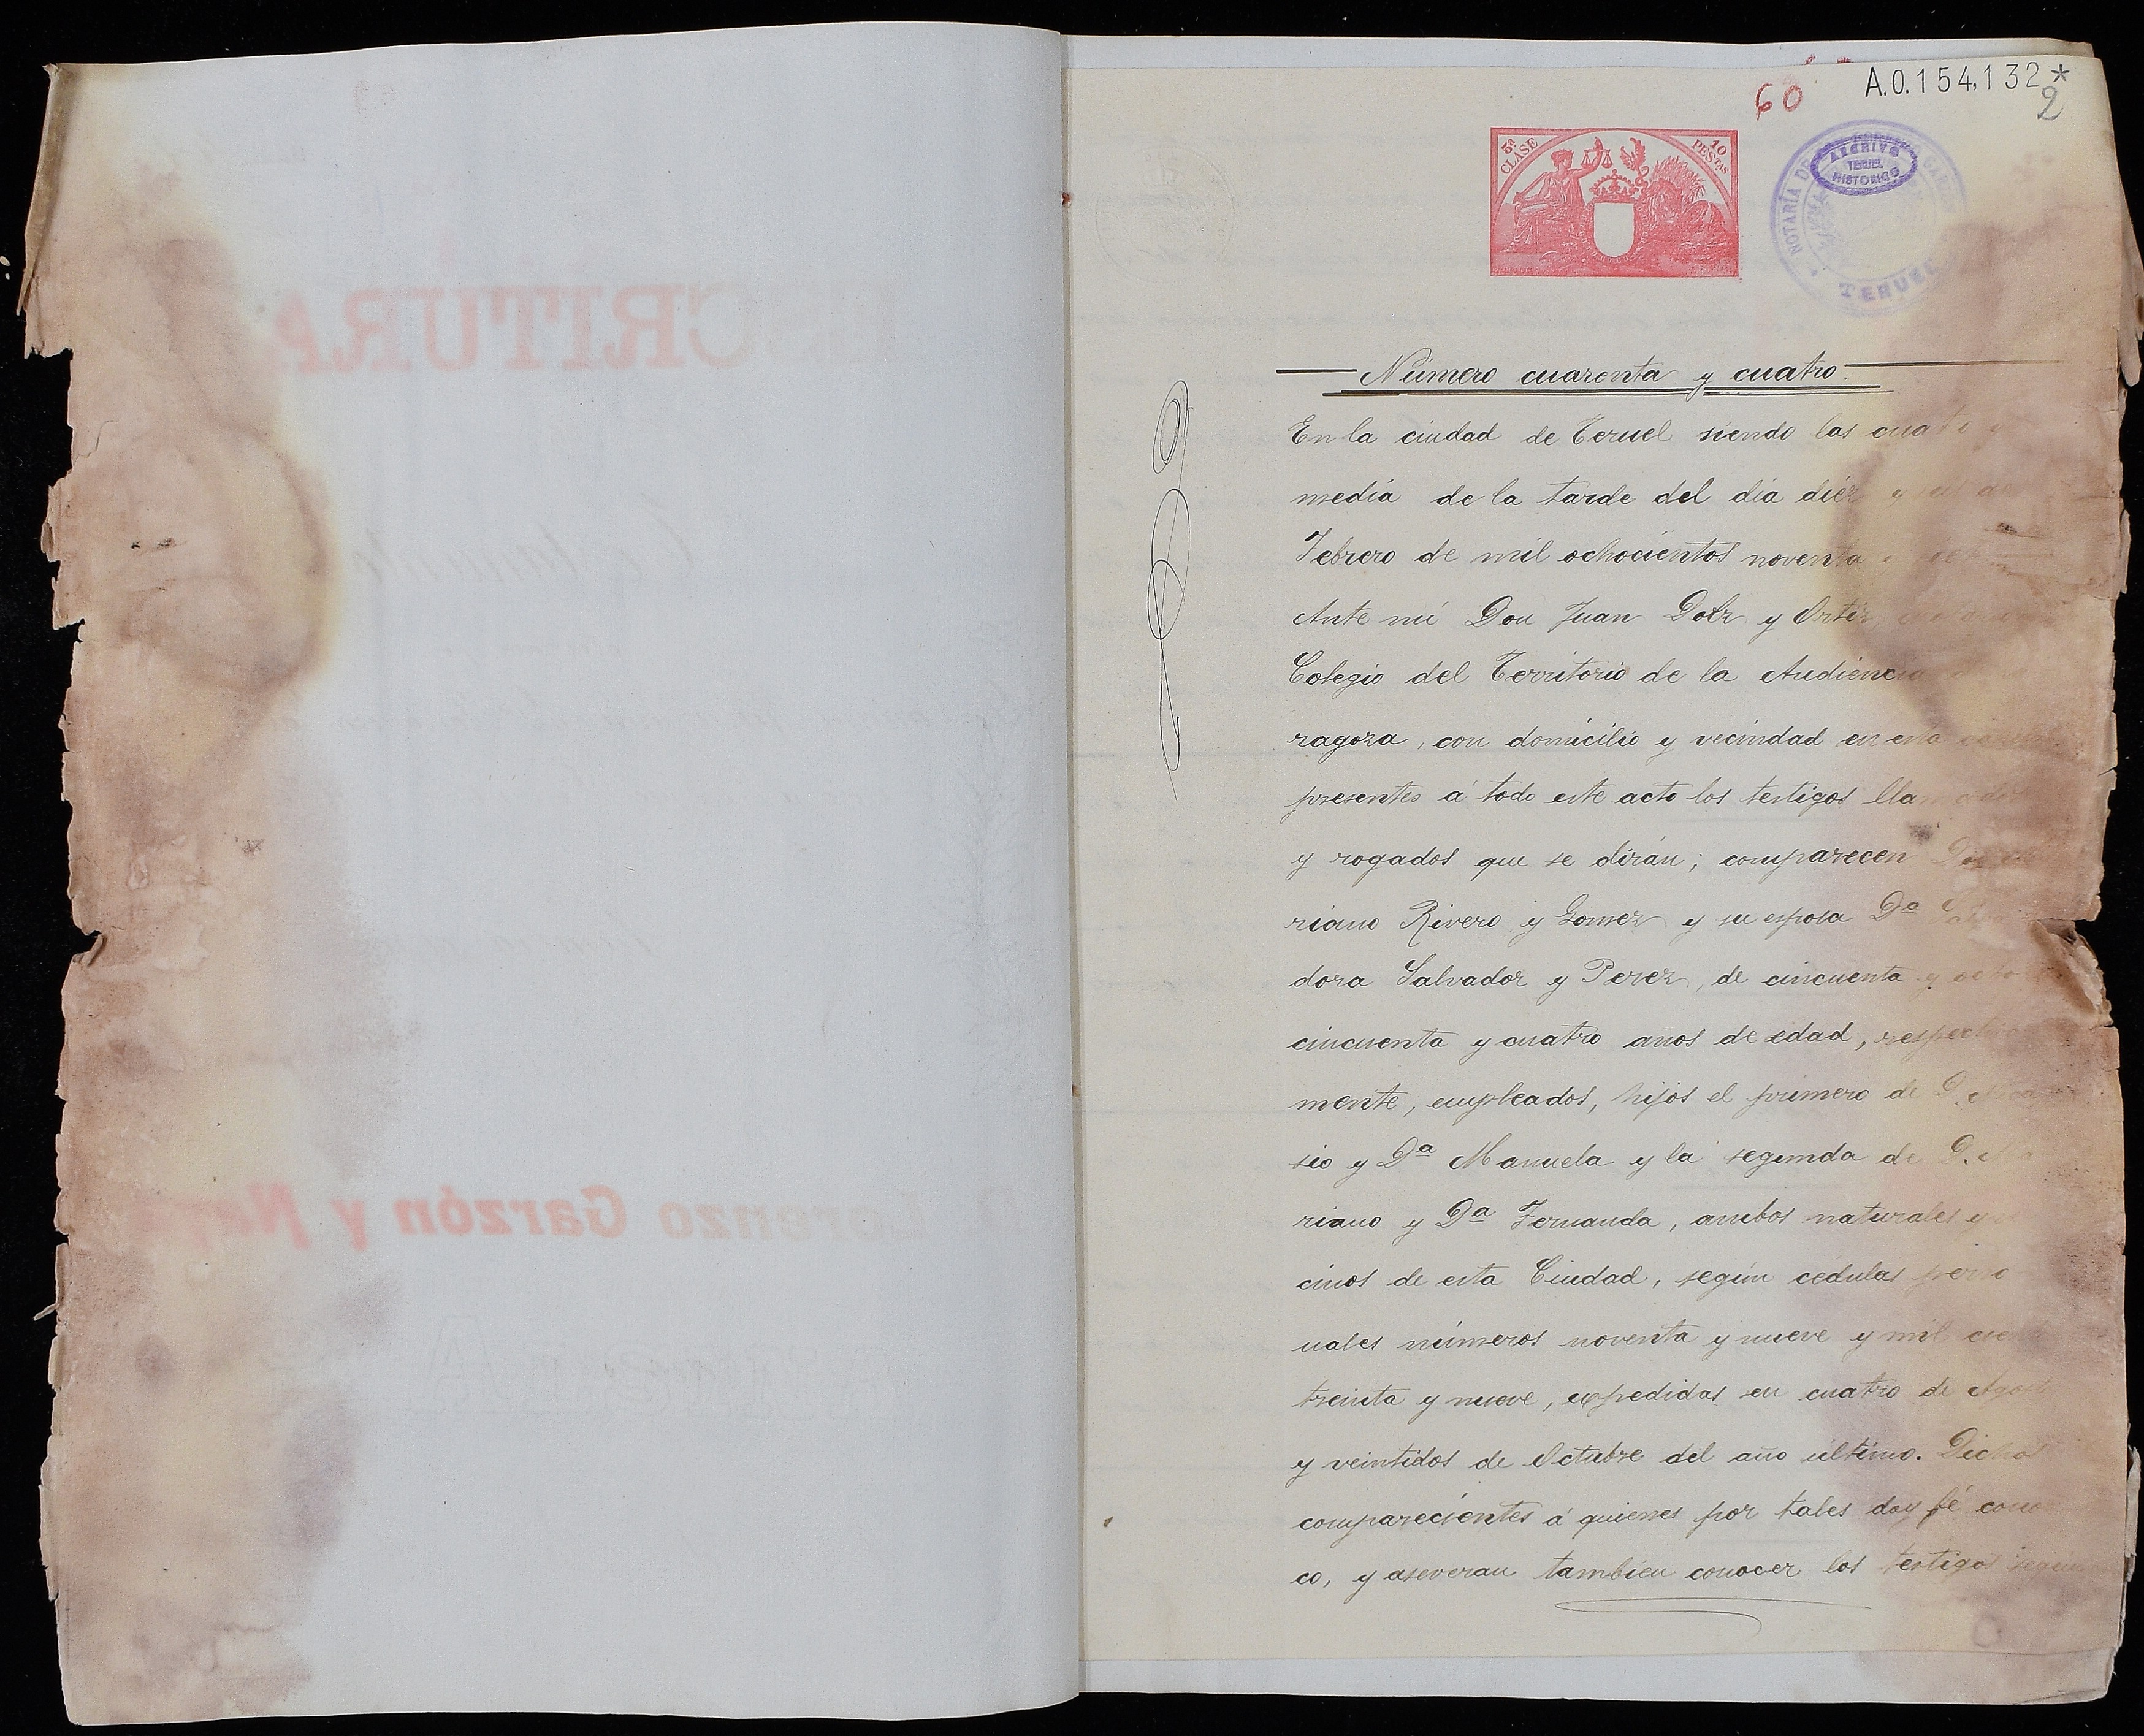 60
A.0.154,132*
2
5ª CLASE
10 PESTAS
ARCHIVO
TERUEL
HISTORICO
NOTARÍA DE
TERUEL
Número cuarenta y cuatro.
En la ciudad de Teruel siendo las cuatro y
media de la tarde del día diéz
Febrero de mil ochocientos noventa
Ante mí Don Juan Dolz y Ortiz,
Colegio del Territorio de la Audiencia
ragoza, con domicilio y vecindad en esta
presentes á todo este acto los testigos llamados
y rogados que se dirán; comparecen
riano Rivero y Gomez y su esposa Dª
dora Salvador y Perez, de cincuenta y ocho
cincuenta y cuatro años de edad, respectiva
mente, empleados, hijos el primero de D. Nica
sio y Dª Manuela y la segunda de D. Ma
riano y Dª Fernanda, ambos naturales y
cinos de esta Ciudad, según cédulas perso
nales números noventa y nueve y mil
treinta y nueve, expedidas en cuatro de Agosto
y veintidos de Octubre del año último. Dichos
comparecientes á quienes por tales doy fé conoz
co, y aseveran tambien conocer los testigos según
ESCRITURA
Lorenzo Garzón y